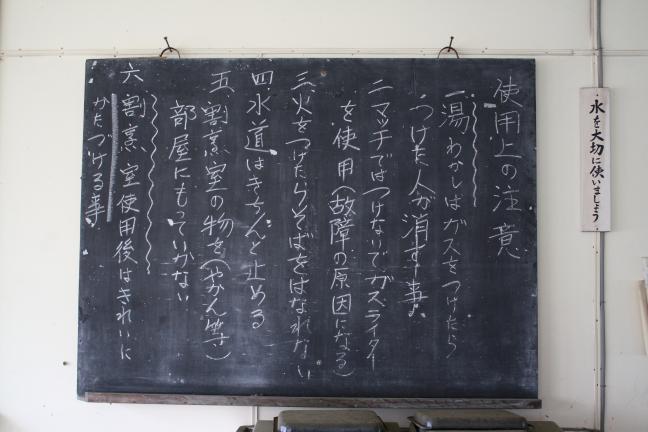 使用上の注意
一 湯わかしはガスをつけたら
つけた人が消す事
二 マッチではつけないでガスライター
を使用(故障の原因になる)
三 火をつけたらそばをはなれない
四 水道はきちんと止める
五 割烹室の物を(やかん等は)
部屋にもっていかない
六 割烹室使用後はきれいに
かたづける事
水を大切に使いましょう